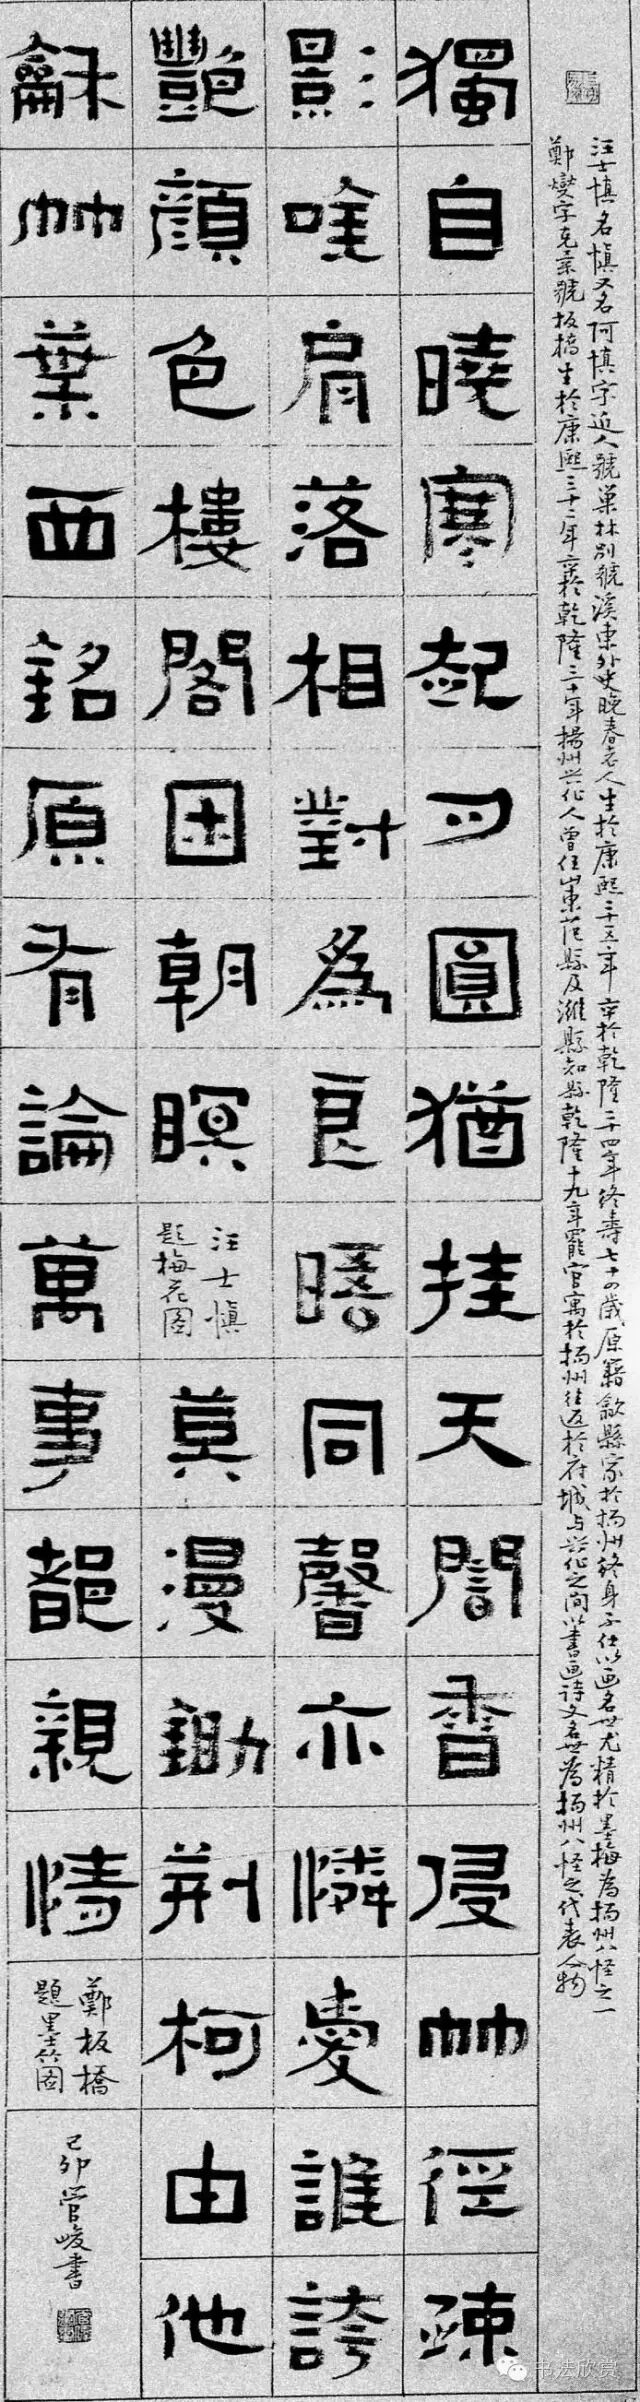 汪士慎名慎又名阿慎字近人號巢林别號溪東外史晚春老人生於康熙二十五年卒於乾隆二十四年終壽七十四歲原籍歙縣家於揚州終身不仕以画名世尤精於墨梅為揚州八怪之一
鄭燮字克柔號板橋生於康熙三十二年卒於乾隆三十年揚州兴化人曾任山東范縣及濰縣知縣乾隆十九年罷官寓於揚州往返於府城与兴化之间以書画詩文名世為揚州八怪之代表人物
獨自曉寒起月圓猶挂天誾香侵竹徑疎
影唫肩落相對為良晤同馨亦憐愛誰誇
艷顔色樓閣困朝暝
汪士慎
題梅花圖
莫漫鋤荊柯由他
龢竹葉西銘原有論萬事都親情
鄭板橋
題墨竹圖
己卯管峻書
书法欣赏